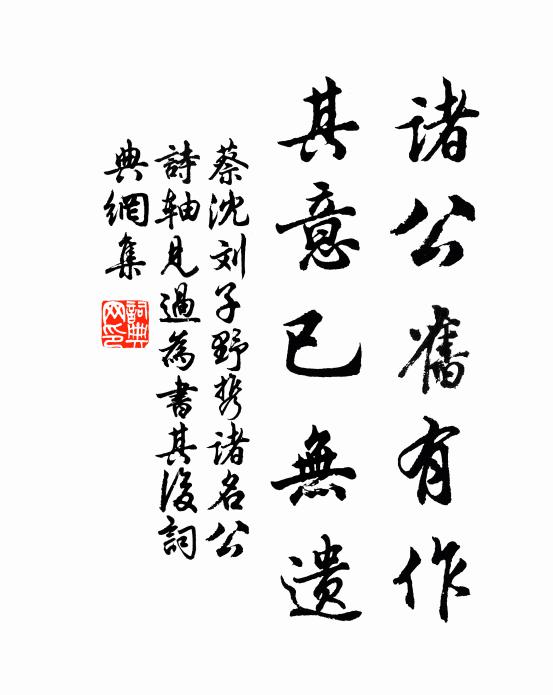 諸公舊有作
其意已無遺
蔡沈刘子野携諸名公
詩軸見過為書其後詞
典網集
詞典网印